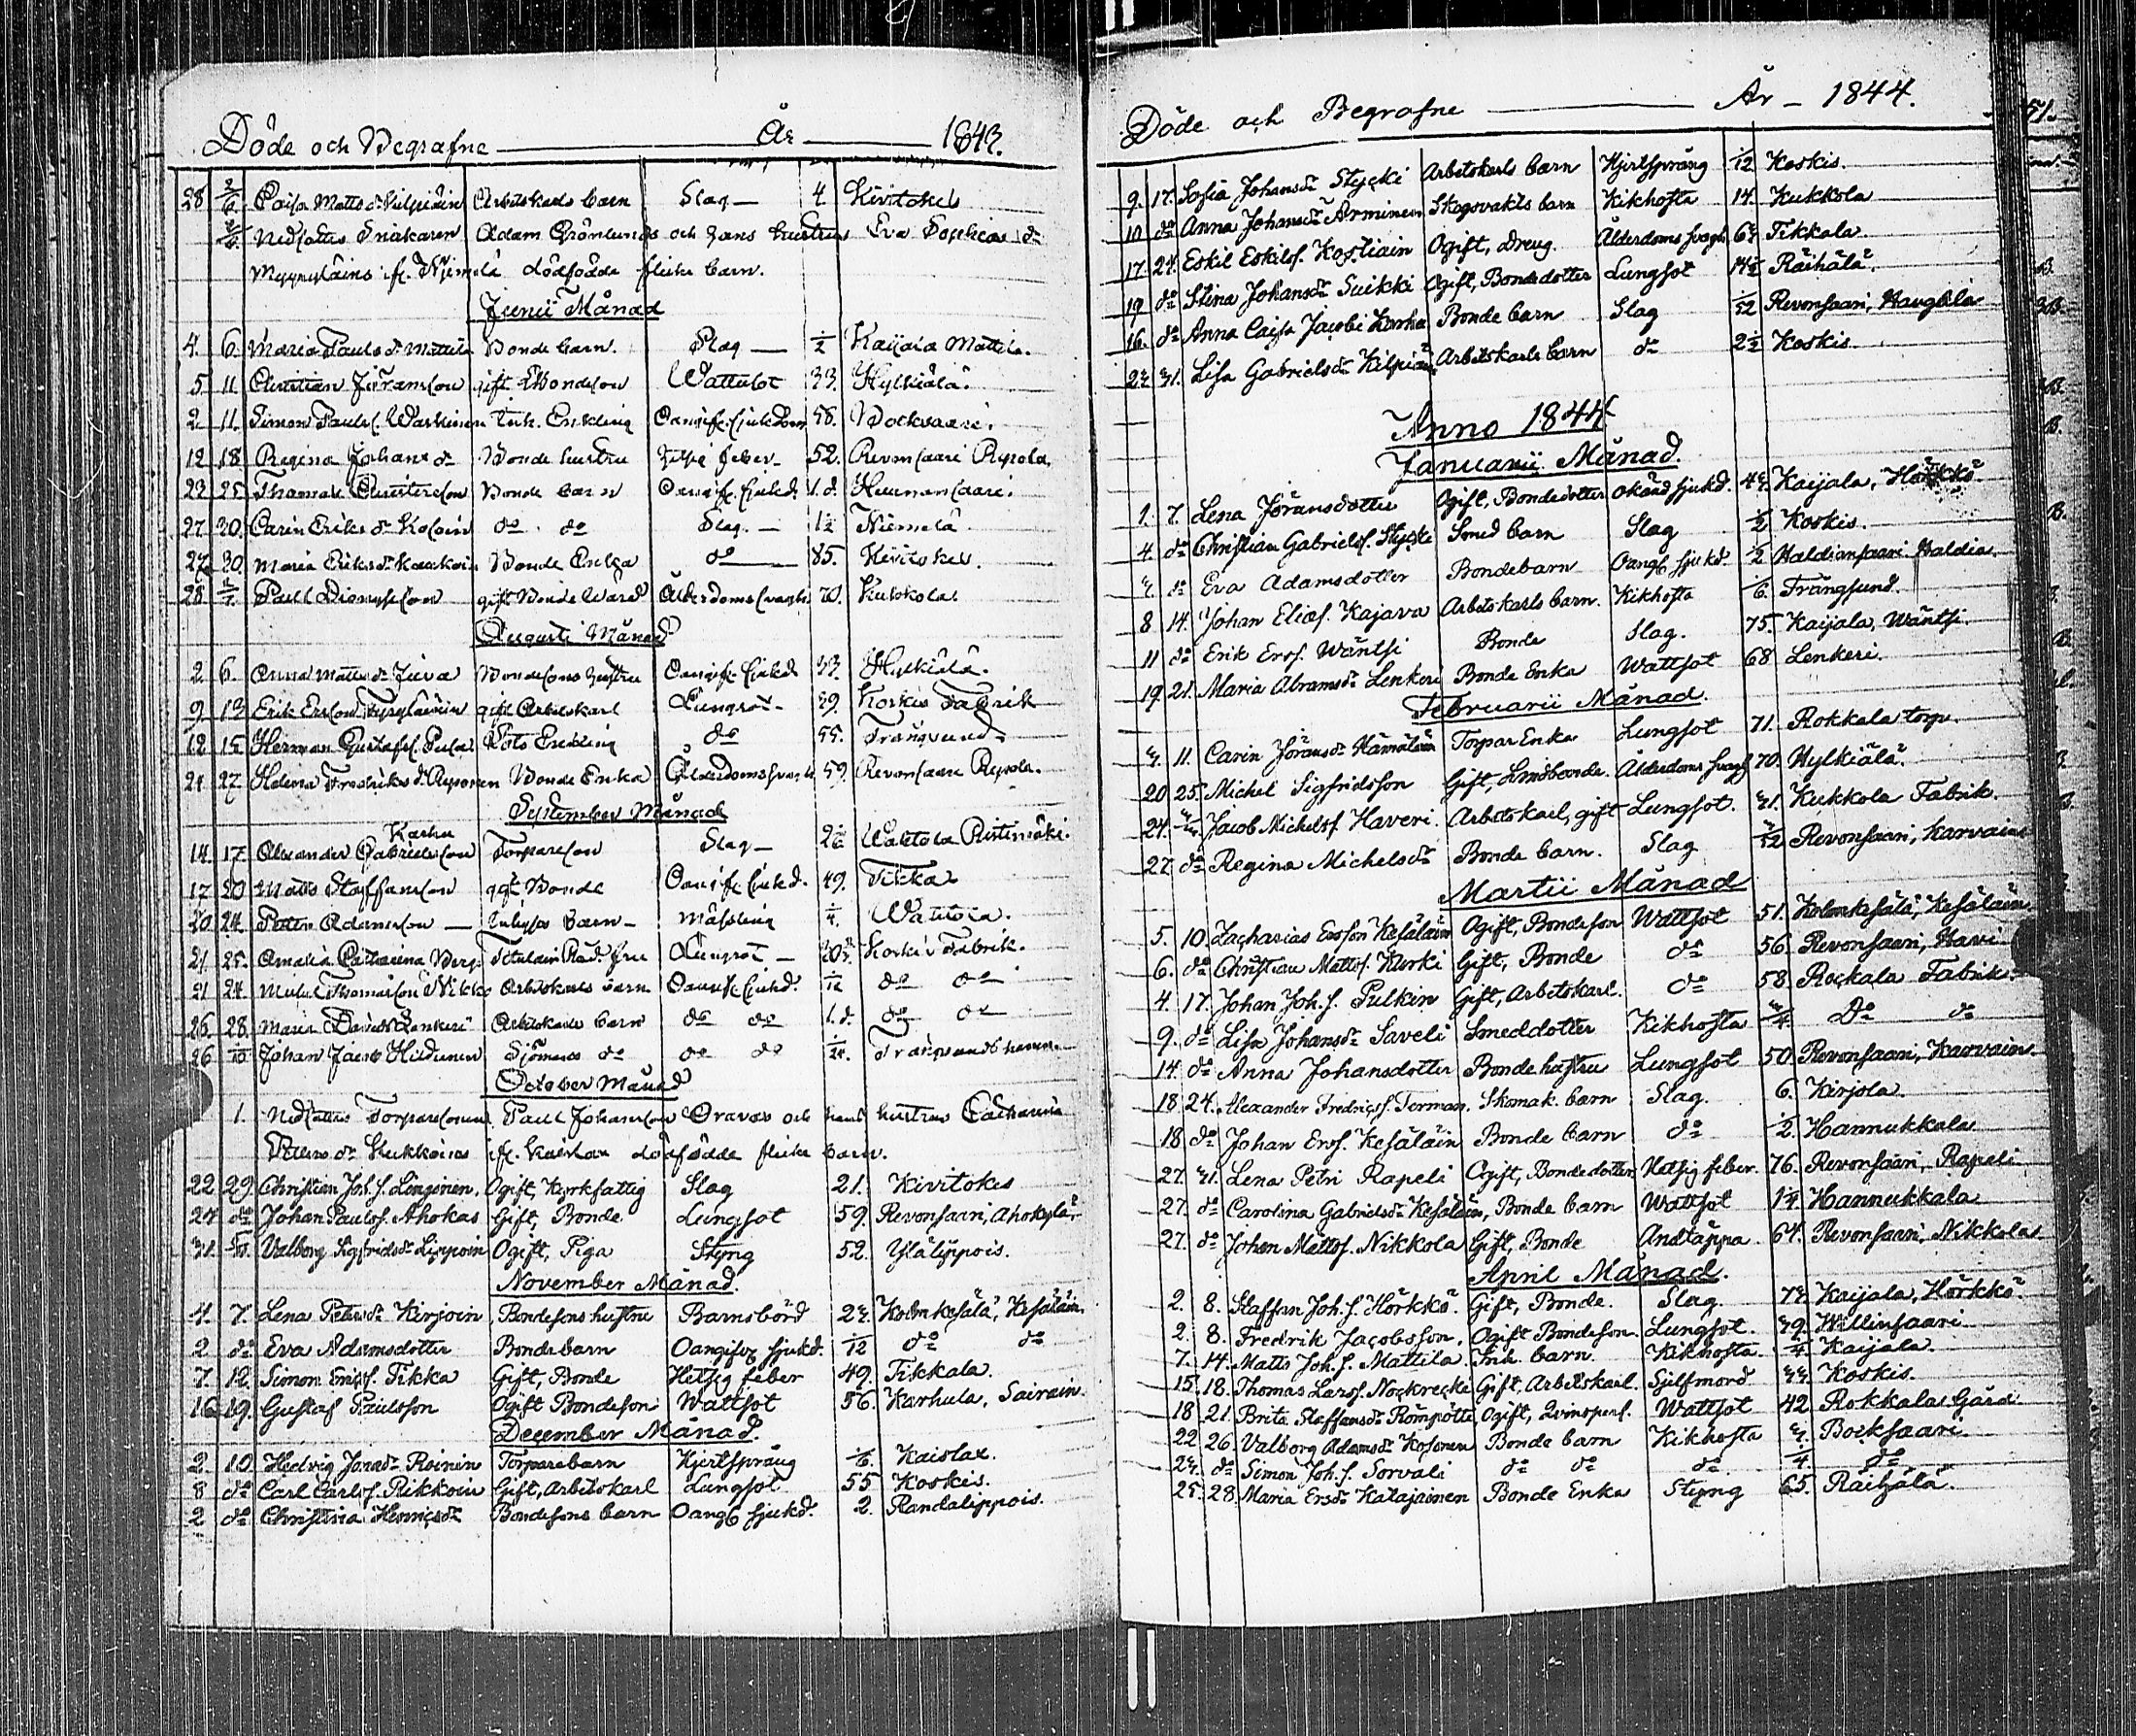 Döde och Begrafne År 1843.
28 2/6 Caisa Matts dr Kilpiäin Arbetskarls barn Slag 4 Kivitokes
Nedsattes Snickaren Adam Grönlunds och hans hustrus Eva Sophias dr
fr. Niemelä dödfödde flicke barn.
Junii Månad
4. 6. Maria Pauls dr Mattila Bonde barn. Slag 1/2 Kaijala Mattila.
5 11 Christian Jöransson gift Bondeson Wattusot 33. Hylkiälä.
2. 11. Simon Paulss. Enkling Oangifv. sjukdom 58. Bocksaari.
12 18 Regina Johans dr Bonde hustru feber 52. Revonsaari Repola.
23 25 Thomas Christersson Bonde barn Oangifv. sjukd. 1. d.
27. 30. Carin Eriks dr do do Slag. 1 1/2 Niemelä
27 30. Maria Eriks dr Bonde Enka do 85. Kivitokes.
28 Paul Dionysiison gift Bonde Ålderdomssvaghet 70. Kukkola
Augusti Månad
2 6. Anna Matts dr Juva Bondesons hustru Oangifv. sjukd 33. Hylkiälä.
9 13 Erik Ersson gift Arbetskarl Lungsot 39. Koskis Fabrik
12 15. Herman Gustafs. Enkling do 55. Trångsund.
21 27. Helena Fredriks dr Reponen Bonde Enka Ålderdomssvaghet 59. Revonsaari Repola.
September Månad
Karhu
14. 17. Alexander Gabrielsson Torpareson Slag Ristimäki.
17 20 Matts Staffansson gift Bonde Oangifv. sjukd. 49. Tikka
20 24. Petter Adamsson barn Mässling 1/4.
21. 25. Amalia Catharina Berg Lungsot Koskis Fabrik.
21 24. Michel Thomasson Nikko Arbetskarls barn Oangifv. sjukd. 1/12 do do
26. 28. Maria Davids dr Lenkeri Arbetskarls barn do do 1. d. do do
26 Johan Jacobs. Hildunen Sjömans do do do
October Månad
1. Nedsattes Torparesonen Paul Johansson Oravas och hans hustrus Catharina
Petters dr Kukkoinas fr. dödfödde flicke barn.
22 29. Christian Joh. s. Linginen, Ogift, Kyrkfattig Slag 21. Kivitokes
27 do Johan Paulss. Ahokas Gift, Bonde Lungsot 59. Revonsaari, Ahokylä.
31. Valborg Sigfridsdr Lippoin Ogift, Piga Styng 52. Ylälippois.
November Månad.
4. 7. Lena Petersdr Kirjoin Bondesons hustru Barnsbörd 23. Kolmkesälä, Kesäläin.
2 do Eva Adamsdotter Bondebarn Oangifv. sjukd. 1/12 do do
7 12. Simon Tikka Gift, Bonde Hetsig feber 49. Tikkala.
16 19. Gustaf Paulsson Ogift Bondeson Wattsot 56. Karhula, Sairain
December Månad.
2 10 Hedvig Jonasdr Roinin Torparebarn Hjertsprång 1/6. Kaislax.
8 do Carl Carlss. Rikkoin Gift, Arbetskarl Lungsot 55 Koskis.
2 do Christina Henricsdr Bondesons barn Oangf sjukd. 2. Randalippois.
Döde och Begrafne År 1844.
9. 17. Sofia Johansdr Stycki Arbetskarls barn Hjertsprång 1/12 Koskis.
10 do Anna Johansdr Arminen Skogsvakts barn Kikhosta 14. Kukkola
17 24. Eskil Eskilss. Kostiain Ogift, Dreng. Ålderdoms svagh 63 Tikkala.
19 do Stina Johansdr Suikki Ogift, Bondedotter Lungsot 14 1/2 Räihälä.
16. do Anna Caisa Jacobi Karha Bonde barn Slag /52 Revonsaari, Haughila
23 31. Lisa Gabrielsdr Kilpiäin Arbetskarls barn do 2 1/2 Koskis.
Anno 1844
Januarii Månad.
1. 7. Lena Jöransdotter Ogift, Bondedotter Okänd sjukd. 43. Kaijala, Hörkkö
4. do Christian Gabrielss. Stycki Smed barn Slag 1/2 Koskis.
3. do Eva Adamsdotter Bondebarn Oangf sjukd. 1/2 Haldiansaari Haldia.
8 14. Johan Eliass. Kajava Arbetskarls barn. Kikhosta 1/6. Trångsund.
11 do Erik Erss. Wäntsi Bonde Slag. 75. Kaijala, Wäntsi.
19. 21. Maria Abramsdr Lenkeri Bonde Enka Wattsot 68 Lenkeri.
Februarii Månad.
3. 11. Carin Jöransdr Hämäläin Torpar Enka Lungsot 71. Rokkala torp.
20 25. Michel Sigfridsson Gift, Bonde. Ålderdoms svagh 70. Hylkiälä.
24. 3/3. Jacob Michelss. Haveri. Arbetskarl, gift Lungsot. 31. Kukkola Fabrik.
27 do Regina Michelsdr Bonde barn. Slag 3/52 Revonsaari, Karvain
Martii Månad
5. 10. Zacharias Ersson Kesäläin Ogift, Bondeson Wattsot 51. Kolmkesälä, Kesäläin
6. do Christian Mattss. Kurki Gift, Bonde do 56. Revonsaari, Havi
4. 17. Johan Joh. s. Pulkin Gift, Arbetskarl. do 58. Rockala Fabrik.
9. do Lisa Johansdr Saveli Smeddotter Kikhosta 3/4 Do do
14. do Anna Johansdotter Bonde hustru Lungsot 50. Revonsaari, Karvain.
18 24. Alexander Fredrics. Terman. Skomak. barn Slag. 6. Kirjola.
18. do Johan Erss. Kesäläin Bonde barn do 1/2. Hannukkala
27. 31. Lena Petri Rapeli Ogift, Bondedotter Hetsig feber 76. Revonsaari, Rapeli
27. do Carolina Gabrielsdr Kesäläin, Bonde barn Wattsot 1 1/4 Hannukkala
27. do Johan Mattss. Nikkola Gift, Bonde Andtäppa 64. Revonsaari, Nikkola
April Månad.
2. 8. Staffan Joh. s. Hörkkö. Gift, Bonde. Slag. 73 Kaijala, Hörkkö
2. 8. Fredrik Jacobsson, Ogift Bondeson. Lungsot. 39. Willinsaari.
7. 14. Matts Joh. s. Mattila. Inh. barn. Kikhosta 1/4 Kaijala.
15. 18. Thomas Larss. Nockrecke Gift, Arbetskarl. Sjelfmord 33. Koskis.
18 21. Brita Staffansdr Römpötti Ogift, Qvinspers. Wattsot 42 Rokkala Gård
22 26. Valborg Adamsdr Kosonen Bonde barn Kikhosta 3. Bocksaari
23. do Simon Joh. s. Sorvali do do do 1/4. do
25. 28. Maria Ersdr Katajainen Bonde Enka Styng 65. Räihälä.
51.